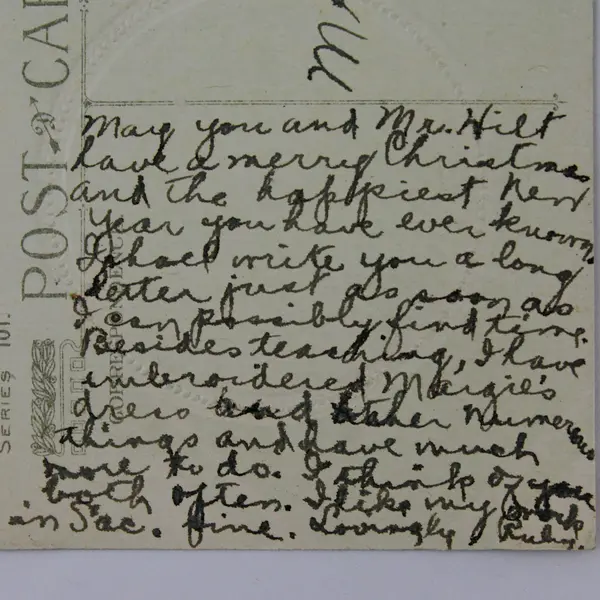 May you and Mr. Hilt
have a merry Christmas
and the happiest New
Year you have ever known.
I shall write you a long
letter just as soon as
I can possibly find time.
Besides teaching, I have
embroidered Margie's
dress and other numerous
things and have much
more to do. I think of you
both often. I like my work
in Sac. fine. Lovingly Ruby.
POST CAR
CORRESPONDENCE
SERIES 101.